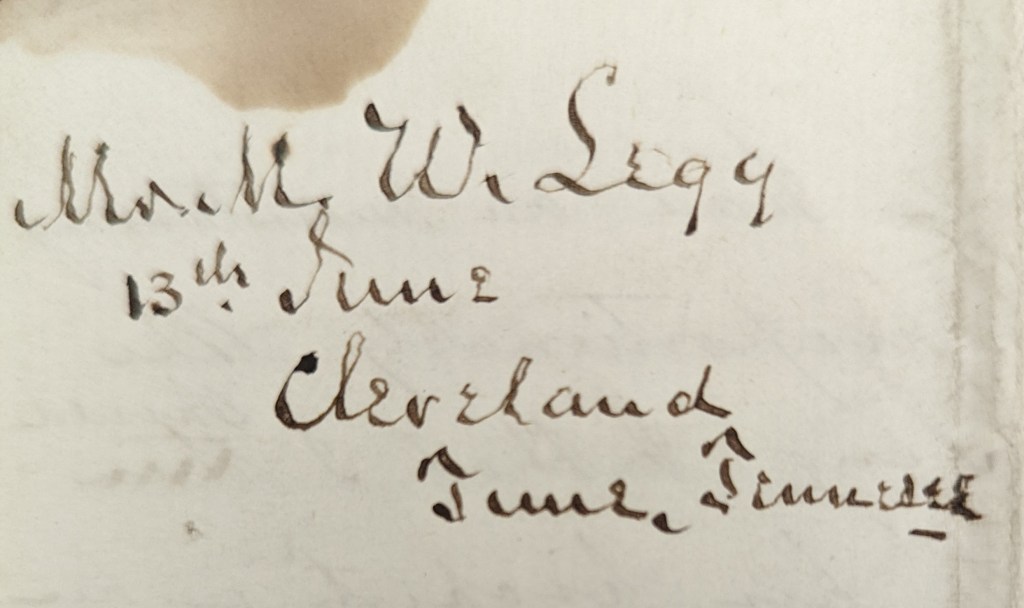 Mr. M. W. Legg
13th June
Cleveland
Tennessee